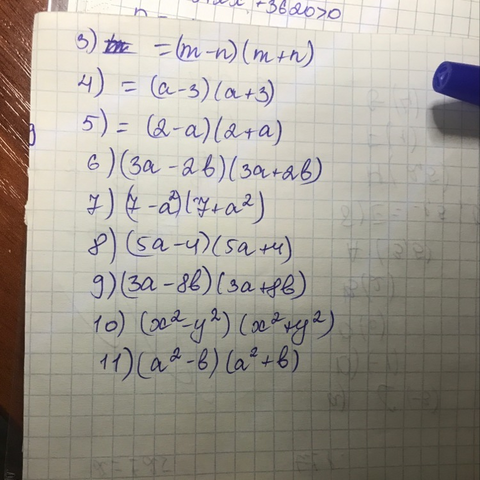 +3620>0
3) = (m-n)(m+n)
4) = (a-3)(a+3)
5) = (2-a)(2+a)
6) (3a-2b)(3a+2b)
7) (7-a²)(7+a²)
8) (5a-4)(5a+4)
9) (3a-8b)(3a+8b)
10) (x²-y²)(x²+y²)
11) (a²-b)(a²+b)